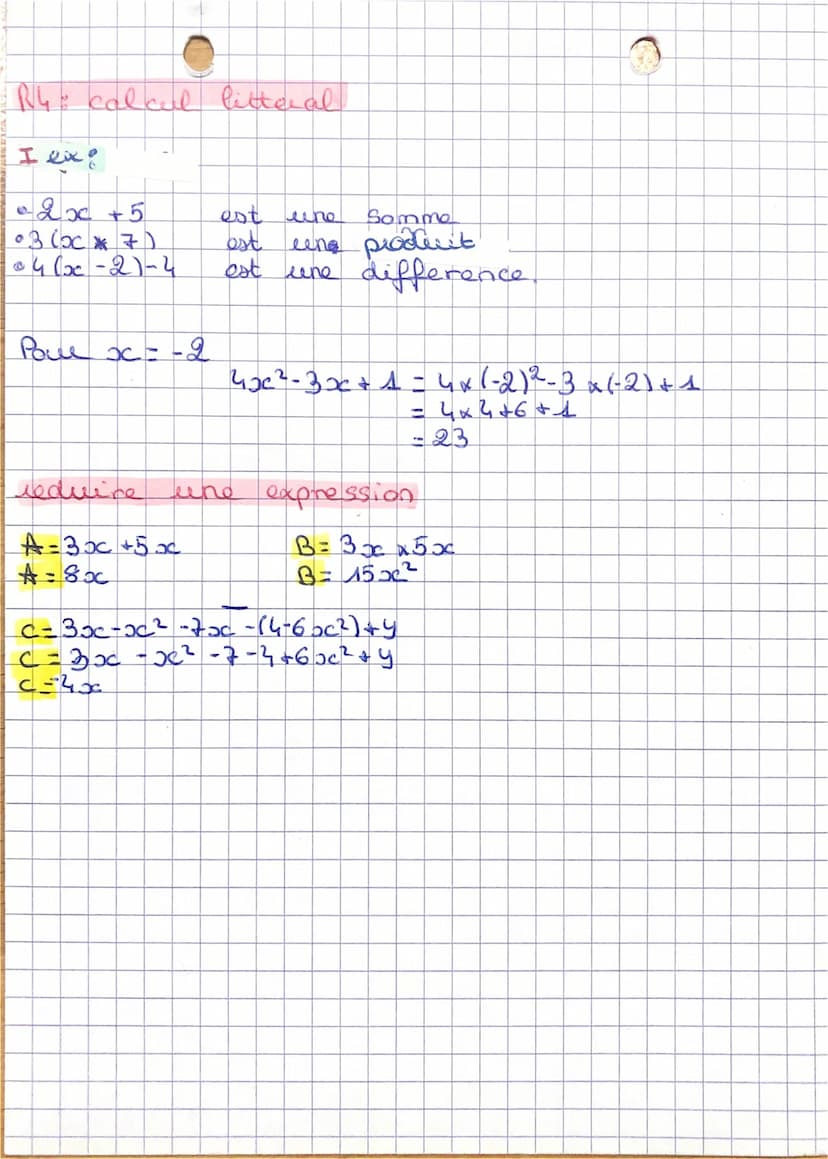 R4 : calcul litteral
I ex :
• 2x + 5 est une somme
• 3(x * 7) est une produit
• 4(x - 2) - 4 est une difference.
Pour x = -2
4x² - 3x + 1 = 4 × (-2)² - 3 × (-2) + 1
= 4 × 4 + 6 + 1
= 23
reduire une expression
A = 3x + 5x B = 3x × 5x
A = 8x B = 15x²
C = 3x - x² - 7x - (4 - 6x²) + y
C = 3x - x² - 7 - 4 + 6x² + y
C = -4x